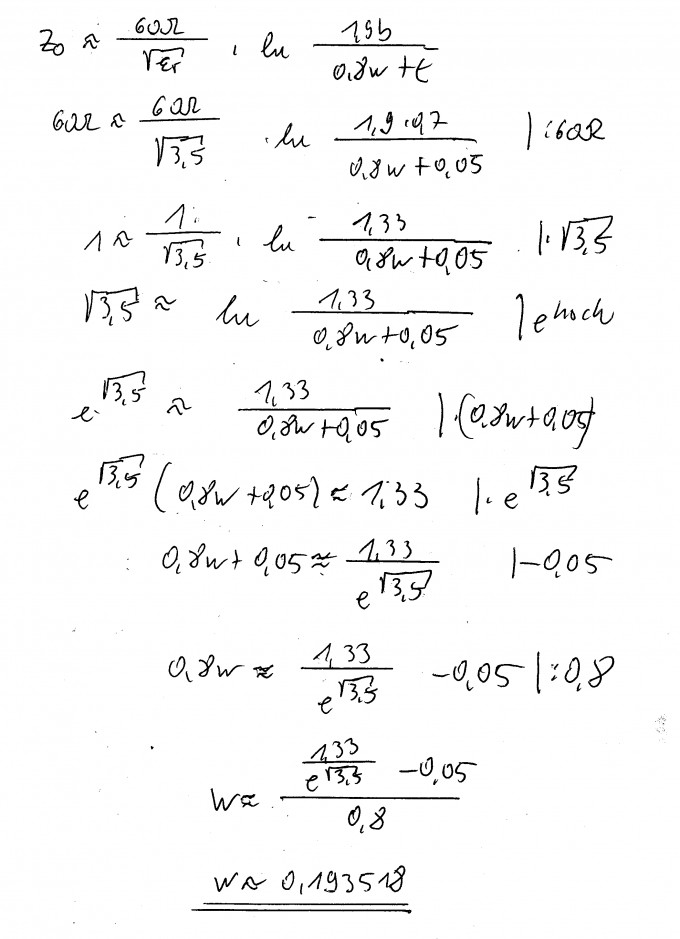 Z₀ ≈ 60Ω/√εr · ln 1,9b/(0,8w+t)
60Ω ≈ 60Ω/√3,5 · ln 1,9·0,7/(0,8w+0,05) |:60Ω
1 ≈ 1/√3,5 · ln 1,33/(0,8w+0,05) |·√3,5
√3,5 ≈ ln 1,33/(0,8w+0,05) |e hoch
e^√3,5 ≈ 1,33/(0,8w+0,05) |·(0,8w+0,05)
e^√3,5 (0,8w+0,05) ≈ 1,33 |· e^√3,5
0,8w+0,05 ≈ 1,33/e^√3,5 |-0,05
0,8w ≈ 1,33/e^√3,5 -0,05 |:0,8
w ≈ (1,33/e^√3,5 -0,05)/0,8
w ≈ 0,193518